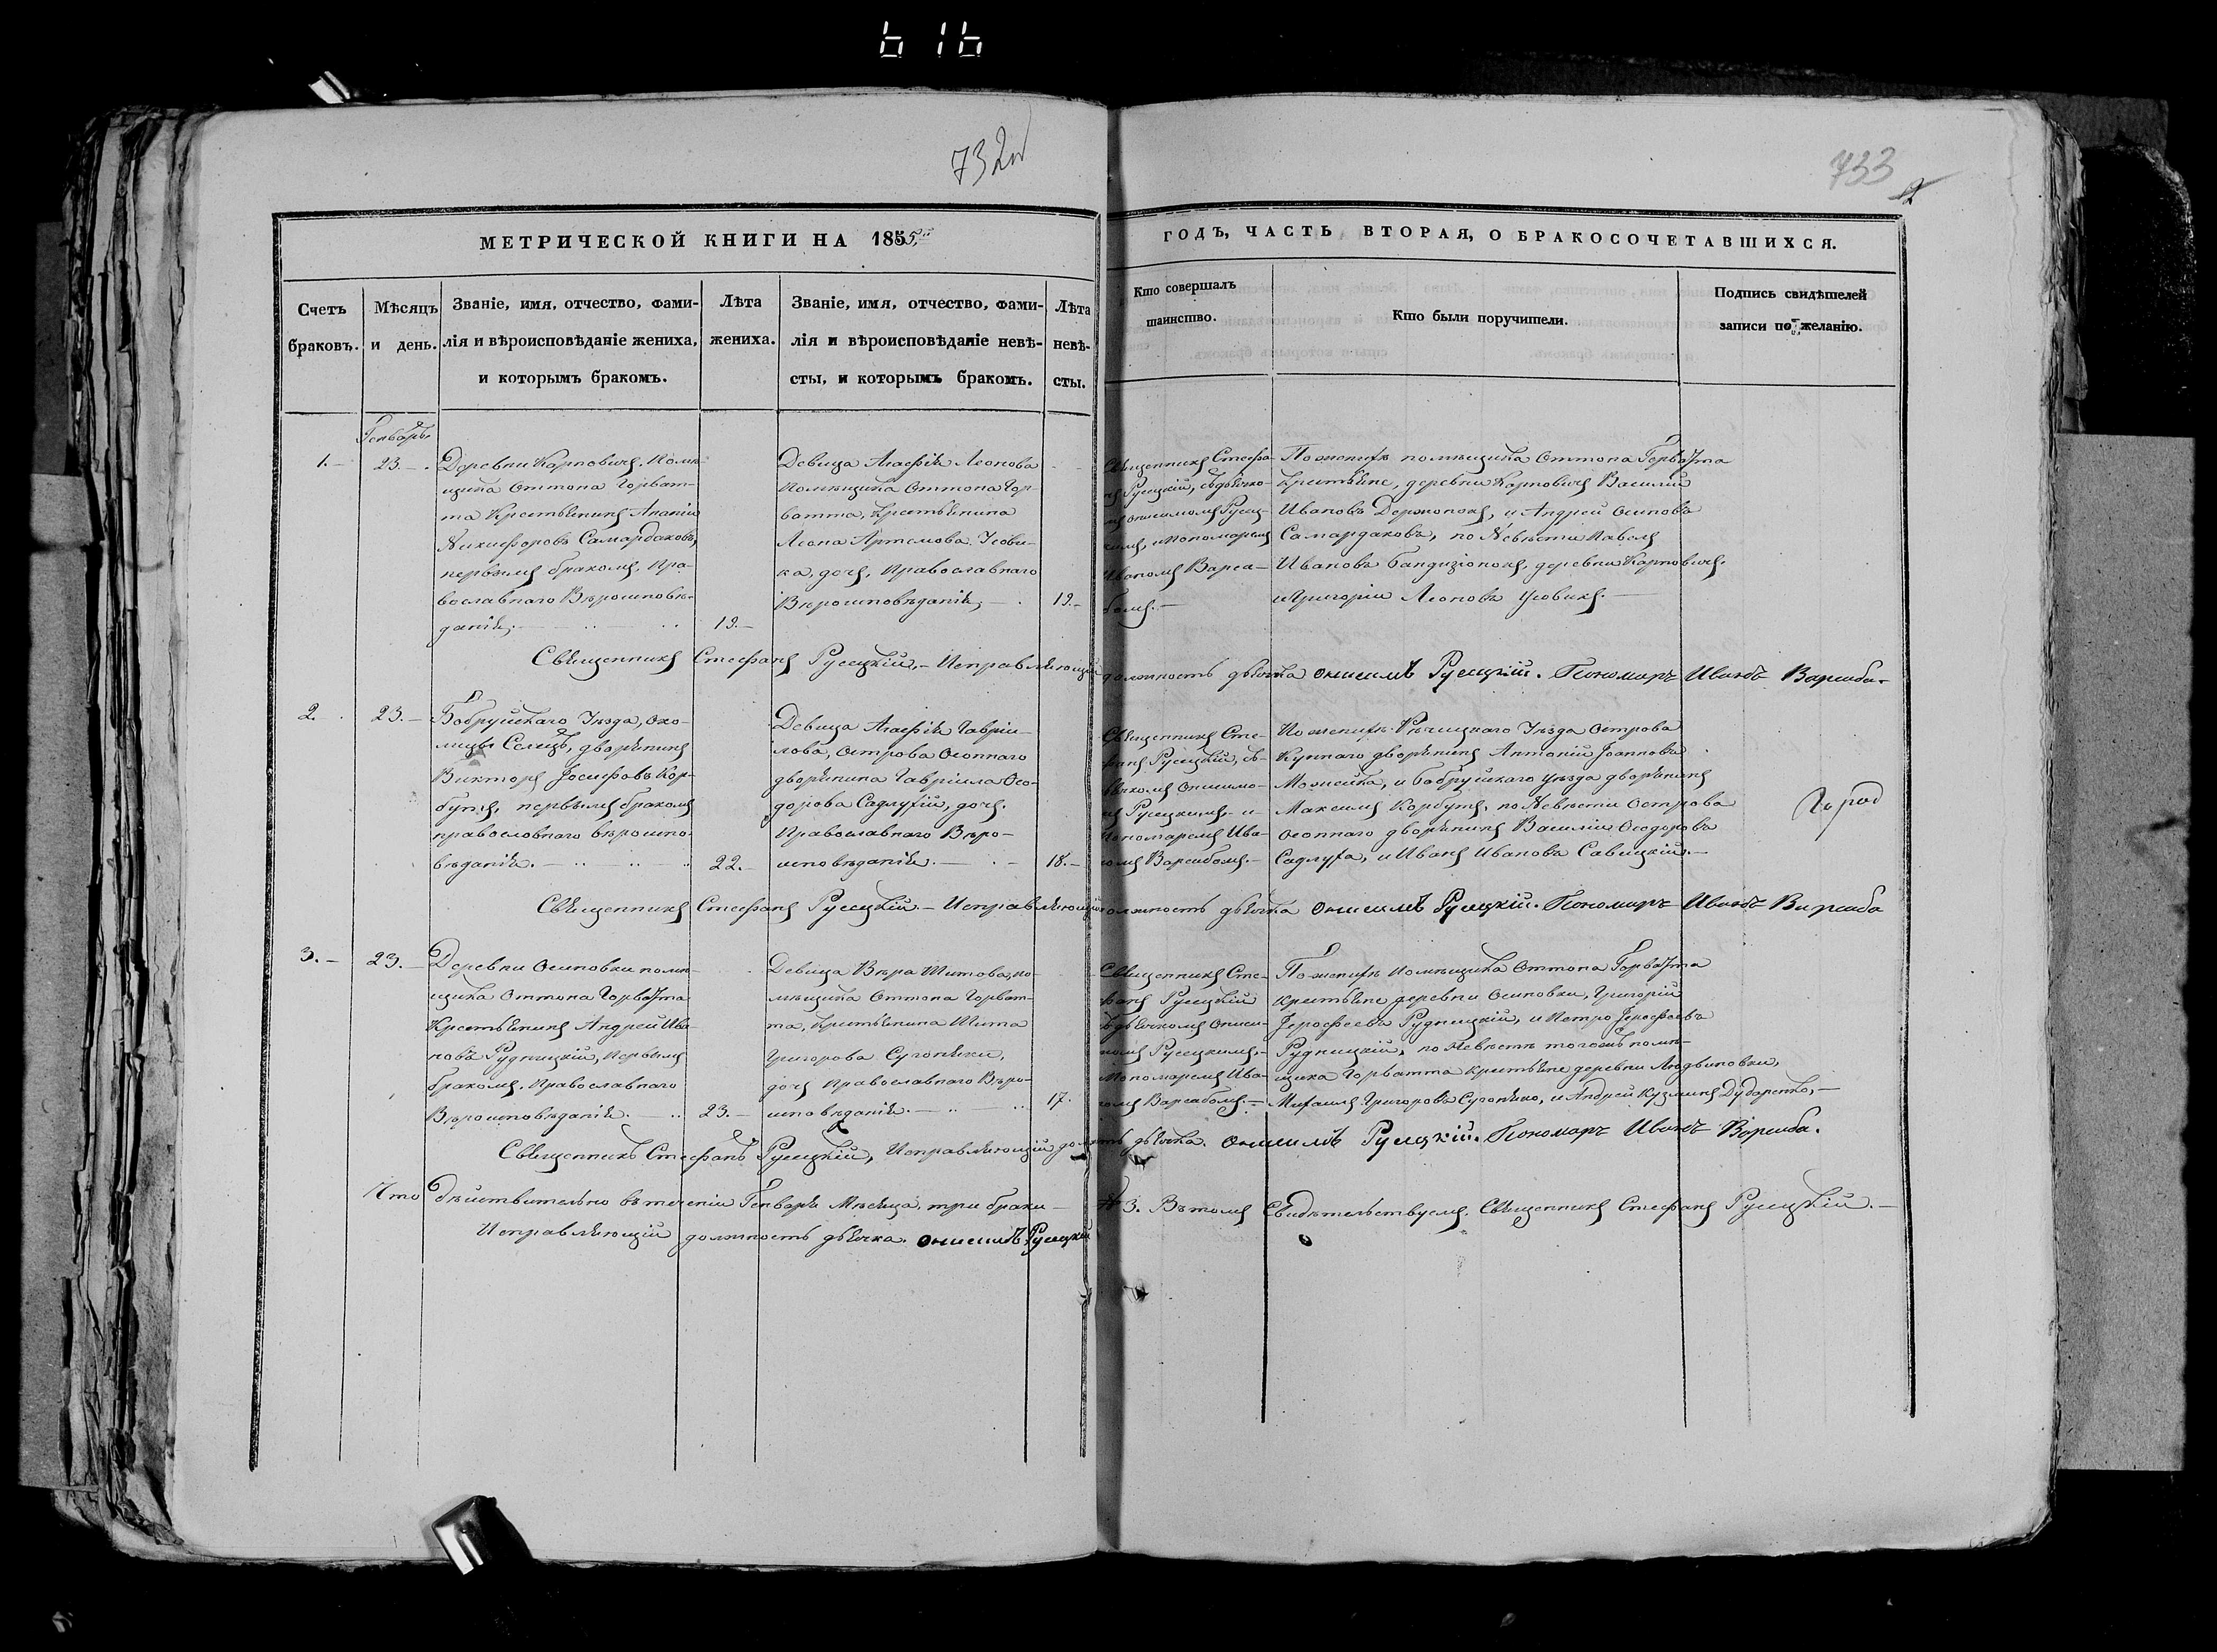 616
732
733
МЕТРИЧЕСКОЙ КНИГИ НА 1855
ГОДЪ, ЧАСТЬ ВТОРАЯ, О БРАКОСОЧЕТАВШИХСЯ.
Счетъ
браковъ.
Мѣсяцъ
и день.
Званіе, имя, отчество, фами-
лія и вѣроисповѣданіе жениха,
и которымъ бракомъ.
Лѣта
жениха.
Званіе, имя, отчество, фами-
лія и вѣроисповѣданіе невѣ-
сты, и которымъ бракомъ.
Лѣта
невѣ-
сты.
Кто совершалъ
таинство.
Кто были поручители.
Подпись свидѣтелей
записи по желанію.
Генварь
1.
23.
Деревни Карповичъ, помѣ-
щика Оттона Горват-
та Крестьянинъ Ананій
Никифоровъ Самардаковъ,
первымъ бракомъ, Пра-
вославнаго Вѣроисповѣ-
данія;
19.
Девица Агафія Леонова
Помѣщика Оттона Гор-
ватта, Крестьянина
Леона Артемова
ка, дочь, Православнаго
Вѣроисповѣданія;
19.
Священникъ Стефа-
нъ Русецкій, съ дьячко-
мъ Онисимомъ Русец-
кимъ, и Пономаремъ
Иваномъ Варса-
бомъ.
По женихѣ помѣщика Оттона Горватта
Крестьяне, деревни Карповичъ Василій
Ивановъ, и Андрей Осиповъ
Самардаковъ, по Невѣсти Павелъ
Ивановъ деревни Карповичъ,
и Григорій Леоновъ
Священникъ Стефанъ Русецкій. Исправляющій должность дьячка Онисимъ Русецкій. Пономаръ Иванъ Варсаба.
2.
23.
Бобруйскаго Уѣзда, око-
лицы Селецъ, дворянинъ
Викторъ Іосифовъ Кор-
бутъ, первымъ бракомъ
православнаго вѣроиспо-
вѣданія.
22.
Девица Агафія Гавріи-
лова, Острова
дворянина Гавріила Ѳео-
дорова Садлухій, дочь,
Православнаго Вѣро-
исповѣданія.
18.
Священникъ Сте-
фанъ Русецкій, съ
дьячкомъ Онисимо-
мъ Русецкимъ, и
Пономаремъ Ива-
номъ Варсабомъ.
По женихѣ Рѣчицкаго Уѣзда Острова
дворянинъ Антоній Іоанновъ
Можейка, и Бобруйскаго уѣзда дворянинъ
Максимъ Корбутъ, по Невѣсти Острова
дворянинъ Василій Ѳеодоровъ
Садлуха, и Иванъ Ивановъ Савицкій.
Священникъ Стефанъ Русецкій. Исправляющій должность дьячка Онисимъ Русецкій. Пономаръ Иванъ Варсаба
3.
23.
Деревни Осиповки помѣ-
щика Оттона Горватта
Крестьянинъ Андрей Ива-
новъ Рудницкій, Первымъ
бракомъ, Православнаго
Вѣроисповѣданія.
23.
Девица Вѣра Титова, по-
мѣщика Оттона Горват-
та, Крестьянина Тита
Григорова
дочь Православнаго Вѣро-
исповѣданія.
17.
Священникъ Сте-
фанъ Русецкій
съ дьячкомъ Ониси-
момъ Русецкимъ,
Пономаремъ Ива-
номъ Варсабомъ.
По женихѣ помѣщика Оттона Горватта
крестьяне деревни Осиповки, Григорій
Іерофеевъ Рудницкій, и Петро Іерофеевъ
Рудницкій, по Невѣстѣ тогожъ помѣ-
щика Горватта крестьяне деревни Людвиновки,
Михаилъ Григоровъ, и Андрей Кузминъ Дударенко,
Священникъ Стефанъ Русецкій, Исправляющій должность дьячка Онисимъ Русецкій. Пономаръ Иванъ Варсаба.
Что Дѣйствительно въ теченіи Генваря Мѣсяца, три браки № 3. Въ томъ Свидѣтельствуемъ. Священникъ Стефанъ Русецкій.
Исправляющій должность дьячка. Онисимъ Русецкій